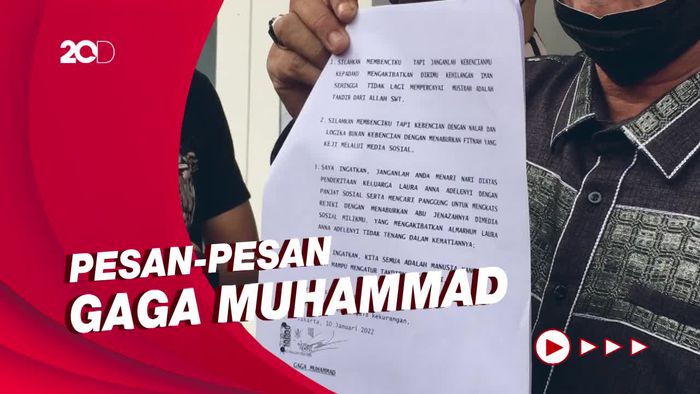 20D
1. SILAHKAN MEMBENCIKU TAPI JANGANLAH KEBENCIANMU
KEPADAKU MENGAKIBATKAN DIRIMU KEHILANGAN IMAN
SEHINGGA TIDAK LAGI MEMPERCAYAI MUSIBAH ADALAH
TAKDIR DARI ALLAH SWT.
2. SILAHKAN MEMBENCIKU TAPI KEBENCIAN DENGAN NALAR DAN
LOGIKA BUKAN KEBENCIAN DENGAN MENABURKAN FITNAH YANG
KEJI MELALUI MEDIA SOSIAL.
SAYA INGATKAN, JANGANLAH ANDA MENARI NARI DIATAS
PENDERITAAN KELUARGA LAURA ANNA ADELENYI DENGAN
PANJAT SOSIAL SERTA MENCARI PANGGUNG UNTUK MENGKAIS
REJEKI DENGAN MENABURKAN ABU JENAZAHNYA DIMEDIA
SOSIAL MILIKMU. YANG MENGAKIBATKAN ALMARHUM LAURA
ANNA ADELENYI TIDAK TENANG DALAM KEMATIANNYA;
INGATKAN, KITA SEMUA ADALAH MANUSIA
MAMPU MENGATUR
PESAN-PESAN
GAGA MUHAMMAD
Kekurangan,
10 Januari 2022
GAGA MUHAMMAD